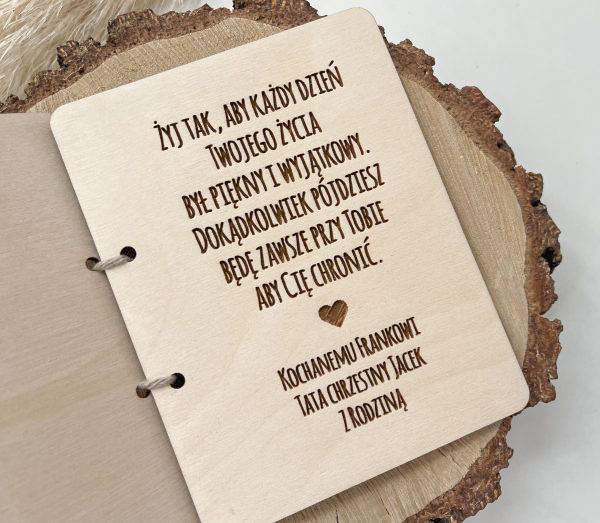 Żyj tak, aby każdy dzień
Twojego życia
był piękny i wyjątkowy.
Dokądkolwiek pójdziesz
będę zawsze przy Tobie
aby Cię chronić.
Kochanemu Frankowi
Tata chrzestny Jacek
z rodziną